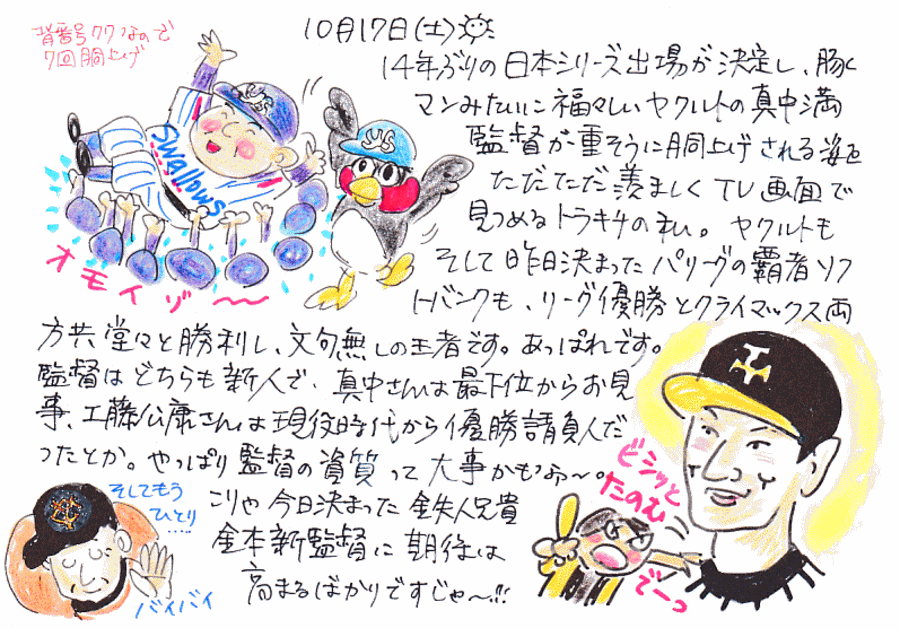 背番号77なので
7回胴上げ
10月17日(土)
14年ぶりの日本シリーズ出場が決定し、豚
マンみたいに福々しいヤクルトの真中満
監督が重そうに胴上げされる姿を
ただただ羨ましくTV画面で
見つめるトラキチの私。ヤクルトも
そして昨日決まったパリーグの覇者ソフ
トバンクも、リーグ優勝とクライマックス両
方共堂々と勝利し、文句無しの王者です。あっぱれです。
監督はどちらも新人で、真中さんは最下位からお見
事、工藤公康さんは現役時代から優勝請負人だ
ったとか。やっぱり監督の資質って大事かもよぉ〜。
こりゃ今日決まった鉄人兄貴
金本新監督に期待は
高まるばかりですじゃ〜!!!
Swallows
YS
YS
オモイゾ〜〜
そしてもう
ひとり
....
バイバイ
ビシッと
たのむ
でーっ